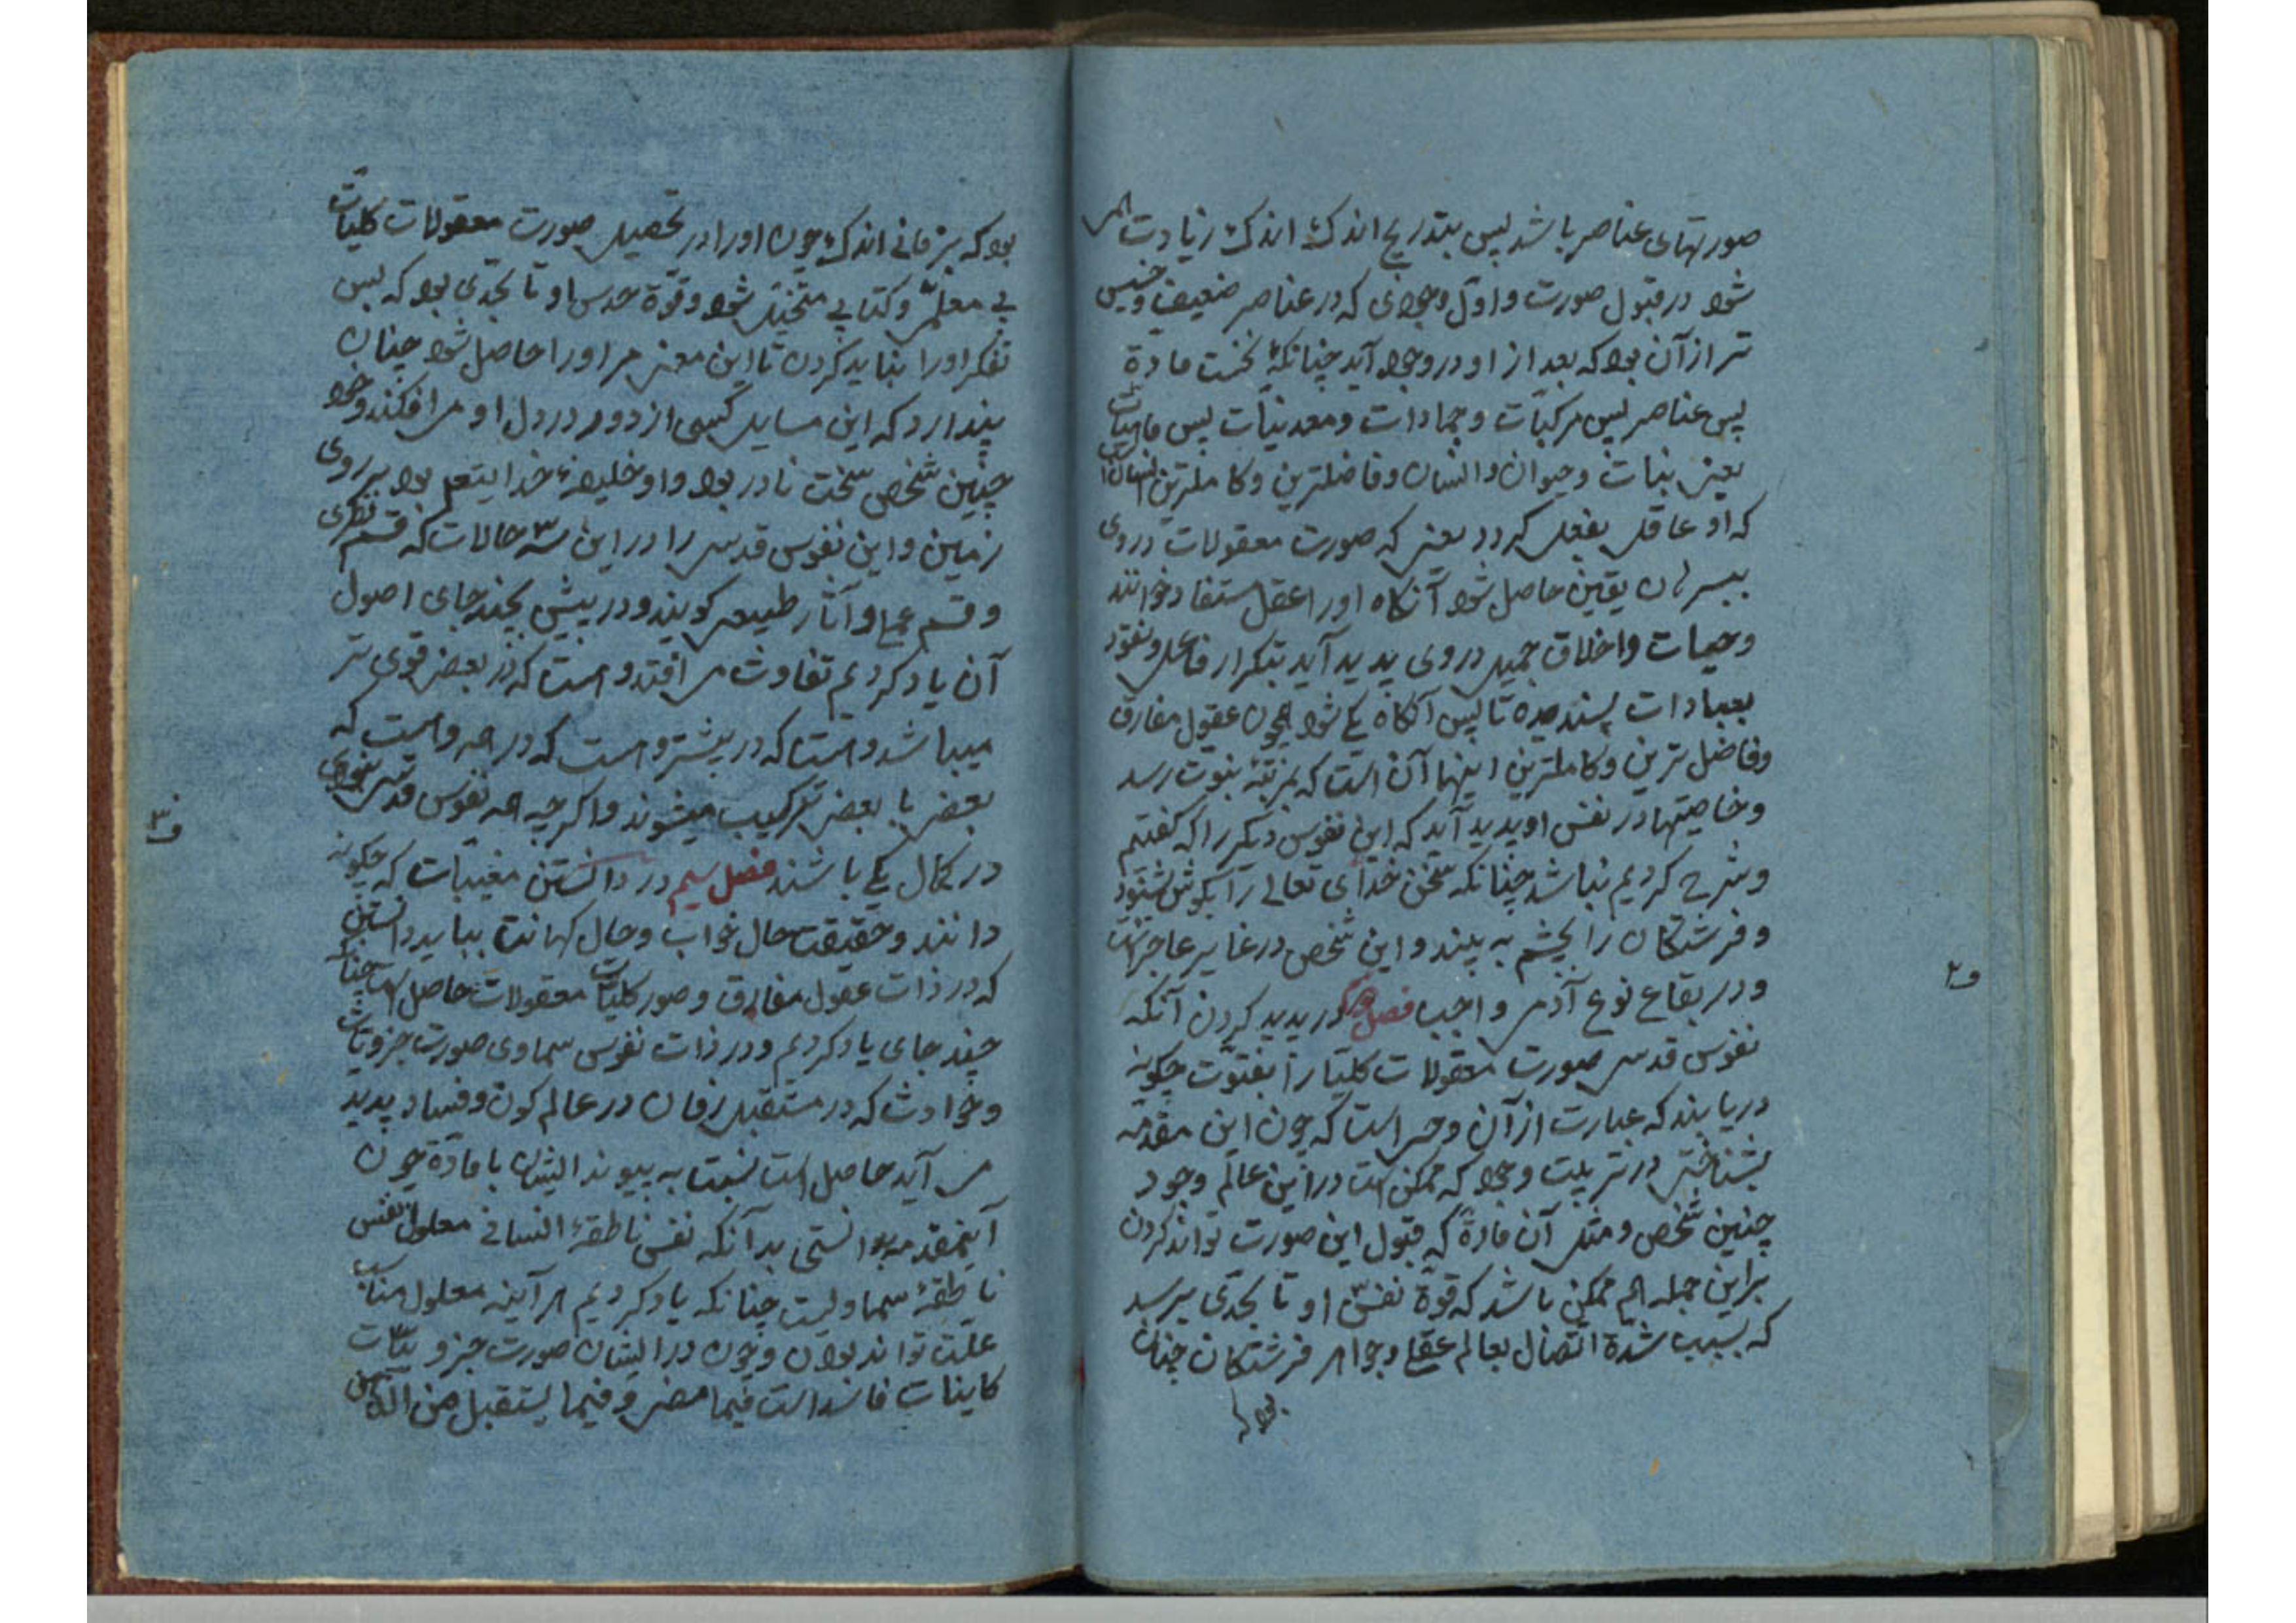 صورتهای عناصر باشد پس بتدریج اندک اندک زیادت می
شود در قبول صورت و اول وجودی که در عناصر ضعیف و خسیس
تر از آن بود که بعد از او در وجود آید چنانکه نخست مادة
پس عناصر پس مرکبات و جمادات و معدنیات پس نامیات
یعنی نبات و حیوان و انسان و فاضلترین و کاملترین انسان آن
که او عاقل بفعل گردد یعنی که صورت معقولات در وی
ببرهان یقین حاصل شود آنکاه او را عقل مستفاد خوانند
و اخلاق جمیل در وی پدید آید بتکرار
بعبادات پسندیده تا پس آنکاه یکی شود همچون عقول مفارق
و فاضل ترین و کاملترین اینها آن است که بمرتبة نبوت رسد
و خاصیتها در نفس او پدید آید که این نفوس دیگر را که گفتیم
و شرح کردیم نباشد چنانکه سخن خدای تعالی را بگوش بشنود
و فرشتکان را بچشم به بیند و این شخص در غایر عاجزیت
و در بقاع نوع آدمی واجب فصل در پدید کردن آنکه
نفوس قدسی صورت معقولات کلیات را بفتوت چکونه
دریابند که عبارت از آن وحی است که چون این مقدمه
بشناختی در ترتیب وجود که ممکن است در این عالم وجود
چنین شخص و مثل آن مادة که قبول این صورت تواند کردن
براین جمله هم ممکن باشد که قوة نفس او تا بحدی برسد
که بسبب شدة اتصال بعالم عقلی و جواهر فرشتکان چنان
بود که
و۲
بود که بزمانی اندک چون او را در تحصیل صورت معقولات کلیات
بی معلم و کتابی متخیل شود و قوة حدس او تا بحدی بود که بس
تفکر او را نباید کردن تا این معنی مر او را حاصل شود چنان
پندارد که این مسایل کسی از دور در دل او می افکند و خود
چنین شخص سخت نادر بود و او خلیفة خدایتعالی بود بر روی
زمین و این نفوس قدسی را در این ۳ حالات که قسم نظری
و قسم عملی و آثار طبیعی گویند و در پیش بچند جای اصول
آن یاد کردیم تفاوت می افتد و است که در بعضی قوی تر
میباشد و است که در بیشتر و است که در همه و است که
بعضی با بعضی ترکیب میشوند و اگر چه همه نفوس قدسی نبوی
در کمال یکی باشند فصل سیم در دانستن مغیبات که چکونه
دانند و حقیقت حال خواب و حال کهانت بباید دانستن
که در ذات عقول مفارق و صور کلیات معقولات حاصل است چنانکه
چند جای یاد کردیم و در ذات نفوس سماوی صورت جزویات
و حوادث که در مستقبل زمان در عالم کون و فساد پدید
می آید حاصل است نسبت به پیوند ایشان با مادة چون
اینمقدمه بدانستی بدآنکه نفس ناطقة انسانی معلول نفس
ناطقة سماویست چنانکه یاد کردیم هر آینه معلول مناسب
علت تواند بودن و چون در ایشان صورت جزویات
کاینات فاسد است فیما مضی و فیما یستقبل من
و۳